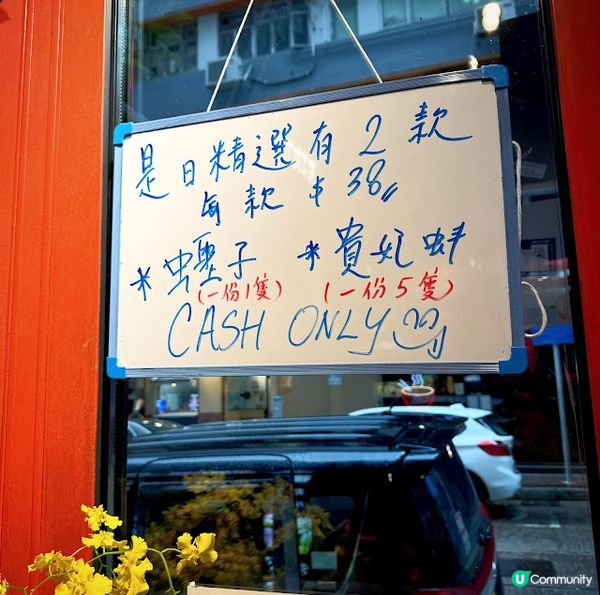 是日精選有2款
每款$38
*蟶子 *貴妃蚌
(一份1隻) (一份5隻)
CASH ONLY
U Community